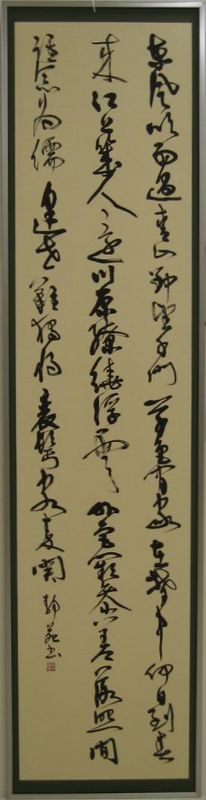 東風吹雨過青山卻望千門草色閑家在夢中何日到春
來江上幾人還川原繚繞浮雲外宮闕參差落照間
誰念為儒逢世難獨將衰鬢客秦關 静苑書